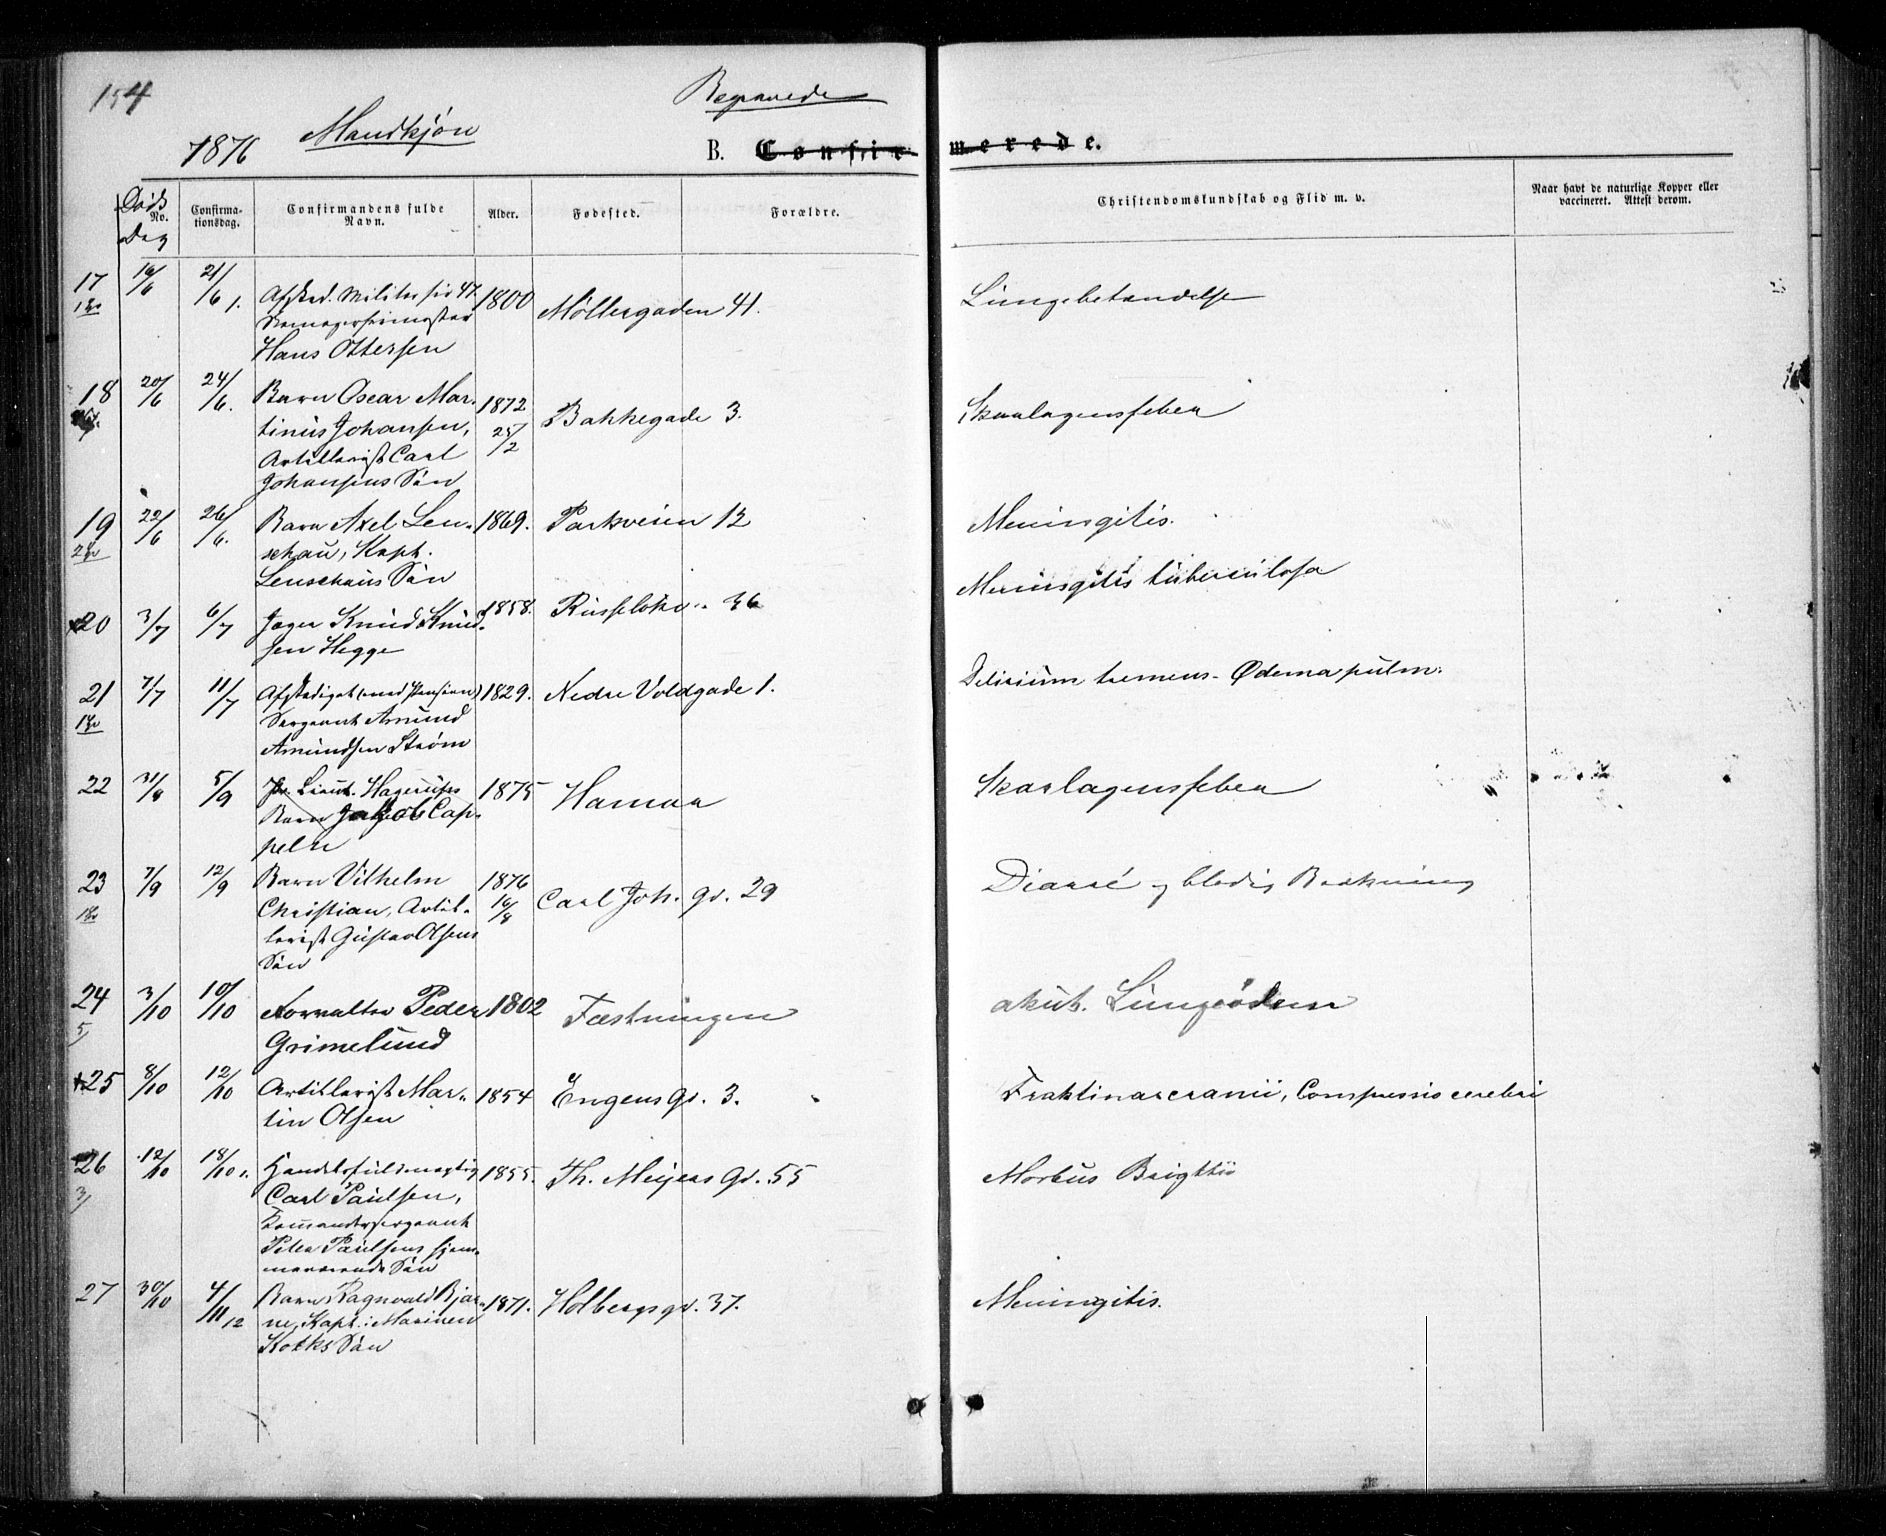 154
Begravede
1876 Mandkjøn
B. Confirmerede.
Døds Dag
No.
Confirmationsdag.
Confirmandens fulde Navn.
Alder.
Fødested.
Forældre.
Christendomskundskab og Flid m. v.
Naar havt de naturlige Kopper eller vaccineret. Attest derom.
17 16/6 21/6 Afsked. 1800 Møllergaden 41. Lungebetændelse
Hans Ottersen
18 20/6 24/6. Barn Oscar Mar- 1872 Bakkegade 3. Skarlagensfeber
tinus Johansen, 25/2
Artillerist Carl
Johansens Søn
19 22/6 26/6. Barn Axel Len- 1869. Parkveien 12 Meningitis.
schau, Kapt.
Lenschaus Søn
20 3/7 6/7 Jæger Knud Knud- 1858. 36 Meningitis tuberculosa
sen Hegge
21 7/7 11/7 Afskediget (med Pension) 1829. Nedre Voldgade 1. Delirium tremens - Ødema pulm.
Sergeant Amund
Amundsen Strøm
22 31/8 5/9 Pr. Lieut. Hagerups 1875 Hamar Skarlagensfeber
Barn Jakob Cap-
pelen
23 7/9 12/9 Barn Vilhelm 1876 Carl Joh. gd. 29 Diarré og blodig Brækning
Christian, Artil- 16/8
lerist Gustav Olsens
Søn
24 3/10 10/10 Forvalter Peder 1802 Fæstningen akut. Lungeødem
Grimelund
25 8/10 12/10 Artillerist Mar- 1854 Engens gd. 3. Fraktura cranii, Compressio cerebri
tin Olsen
26 12/10 18/10. Handelsfuldmægtig 1855. Th. Meyers Gd. 55 Morbus Brigttii
Carl Paulsen,
Kommandersergeant
Peter Paulsens hjem-
meværende Søn
27 30/10 4/11 12 Barn Ragnvald Bjar- 1871. Holbergs gd. 37. Meningitis.
ne, Kapt. i Marinen
Kocks Søn